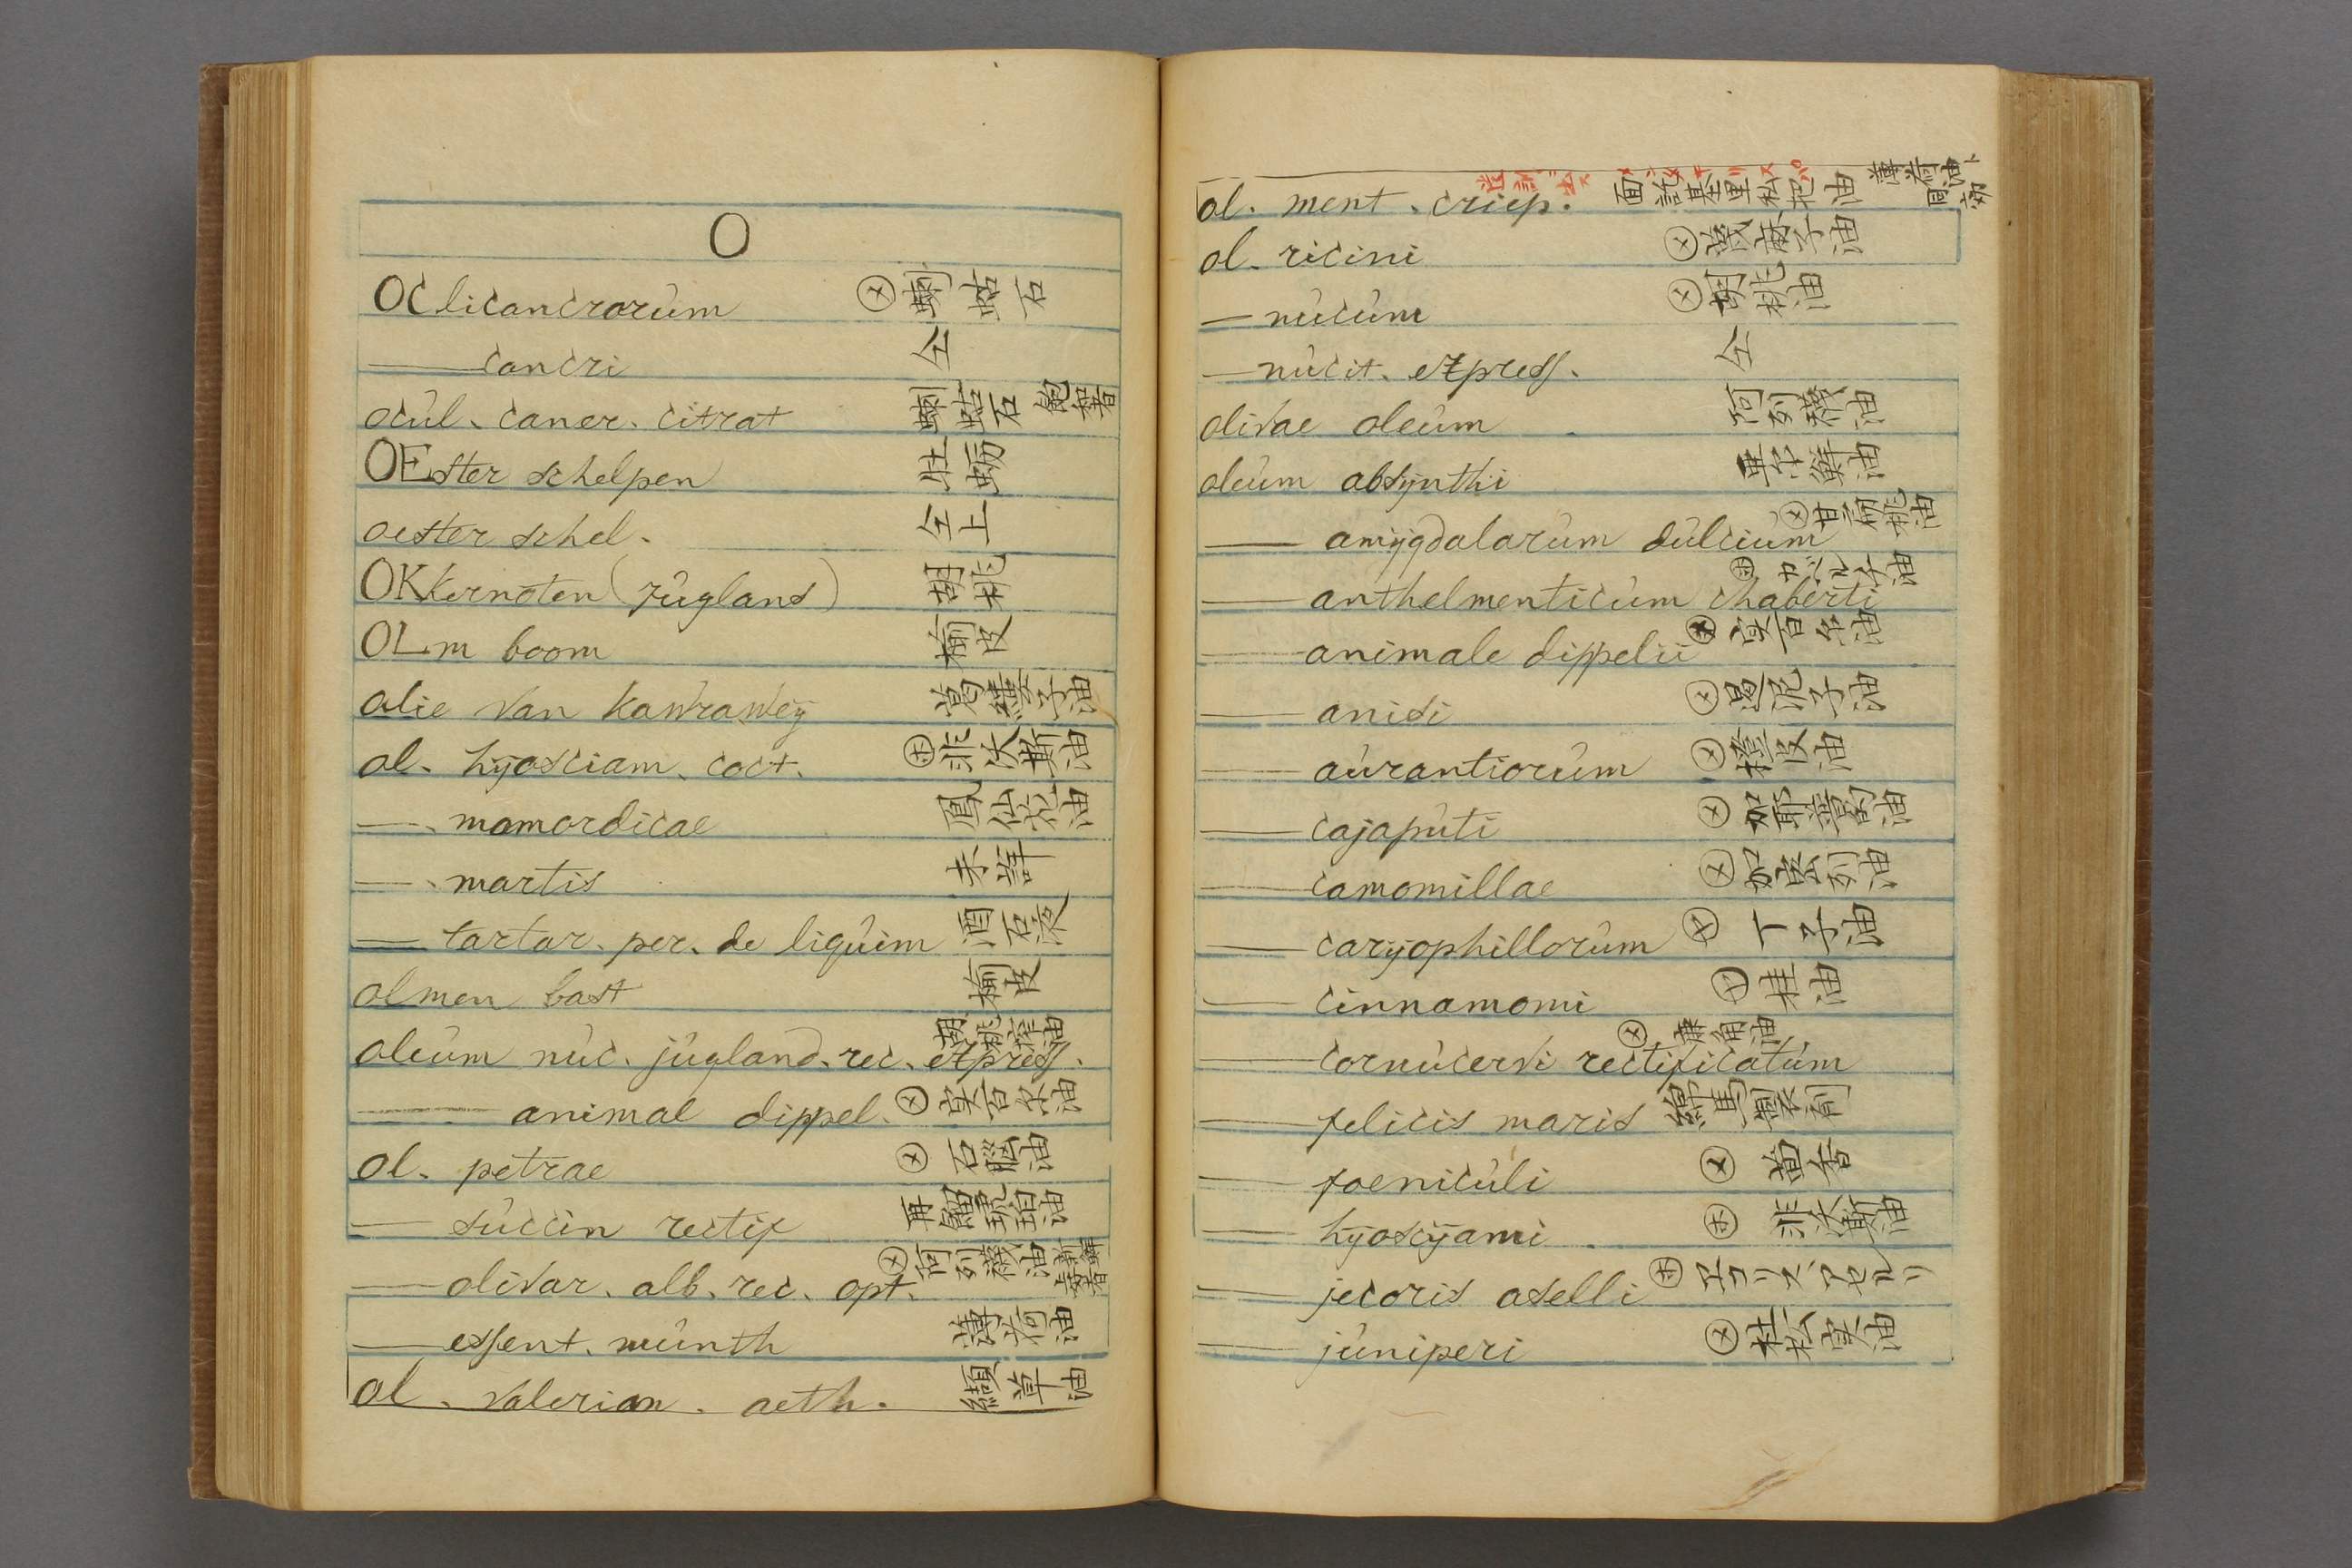 O
OClicancrorùm ㋱ 蝲蛄石
—— cancri 仝
ocùl. caner. citrat 蝲蛄石 飽和者
OEster schelpen 牡蛎
oester schel. 仝上
OKkernoten (jùglans) 胡桃
OLm boom 楡皮
olie van kawraweÿ 葛縷子油
ol. hÿosciam. coct. ㋭ 非沃斯油
—. momordicae 鳳仙花油
—. martis 未詳
—— tartar. per. de liqùim 酒石液
olmen bast 楡皮
oleùm nùc. jùgland. rec. express. 胡桃搾油
—— animal dippel. ㋱
ol. petrae ㋱ 石脳油
—— sùccin rectif 再餾琥珀油
—— olivar. alb. rec. opt. ㋱ 阿列襪油
—— essent. mùnth 薄荷油
ol. valerian. aeth. 纈草油
ol. ment. criep. 薄荷油
ol. ricini ㋱
— nùcùm ㋱ 胡桃油
— nùcit. express. 仝
olivae oleùm 阿列襪油
oleùm absÿnthi
—— amÿgdalarùm dùlciùm ㋱
—— anthelmenticùm chaberti ㋭
—— animale dippelii ㋱
—— anisi ㋱
—— aùrantiorùm ㋱ 橙皮油
—— cajapùti ㋱
—— camomillae ㋱ 加密列油
—— carÿophillorùm ㋲ 丁子油
—— cinnamomi ㋲ 桂油
—— cornùcervi rectificatùm ㋱ 鹿角油
—— felicis maris 綿馬製剤
—— foenicùli ㋱ 茴香
—— hÿoscÿami ㋭ 非沃斯油
—— jecoris aselli ㋭ ヱコリス、アセルリ
—— jùniperi ㋱ 杜松実油